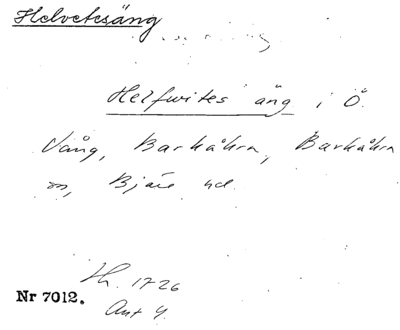 Helvetesäng
Helfwites äng i Ö.
Vång, Barkåkra, Barkåkra
sn, Bjäre hd.
Lh. 1726
Nr 7012.
Ant 4.